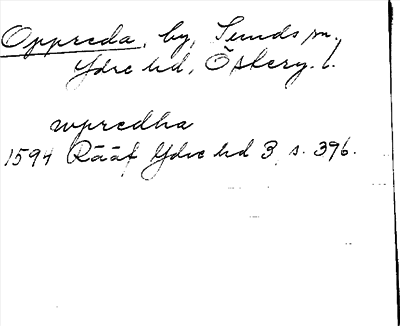 Oppreda, by, Sunds sn.,
Ydre hd, Österg. l.
wpredha
1594 Rääf Ydre hd 3 s. 396.